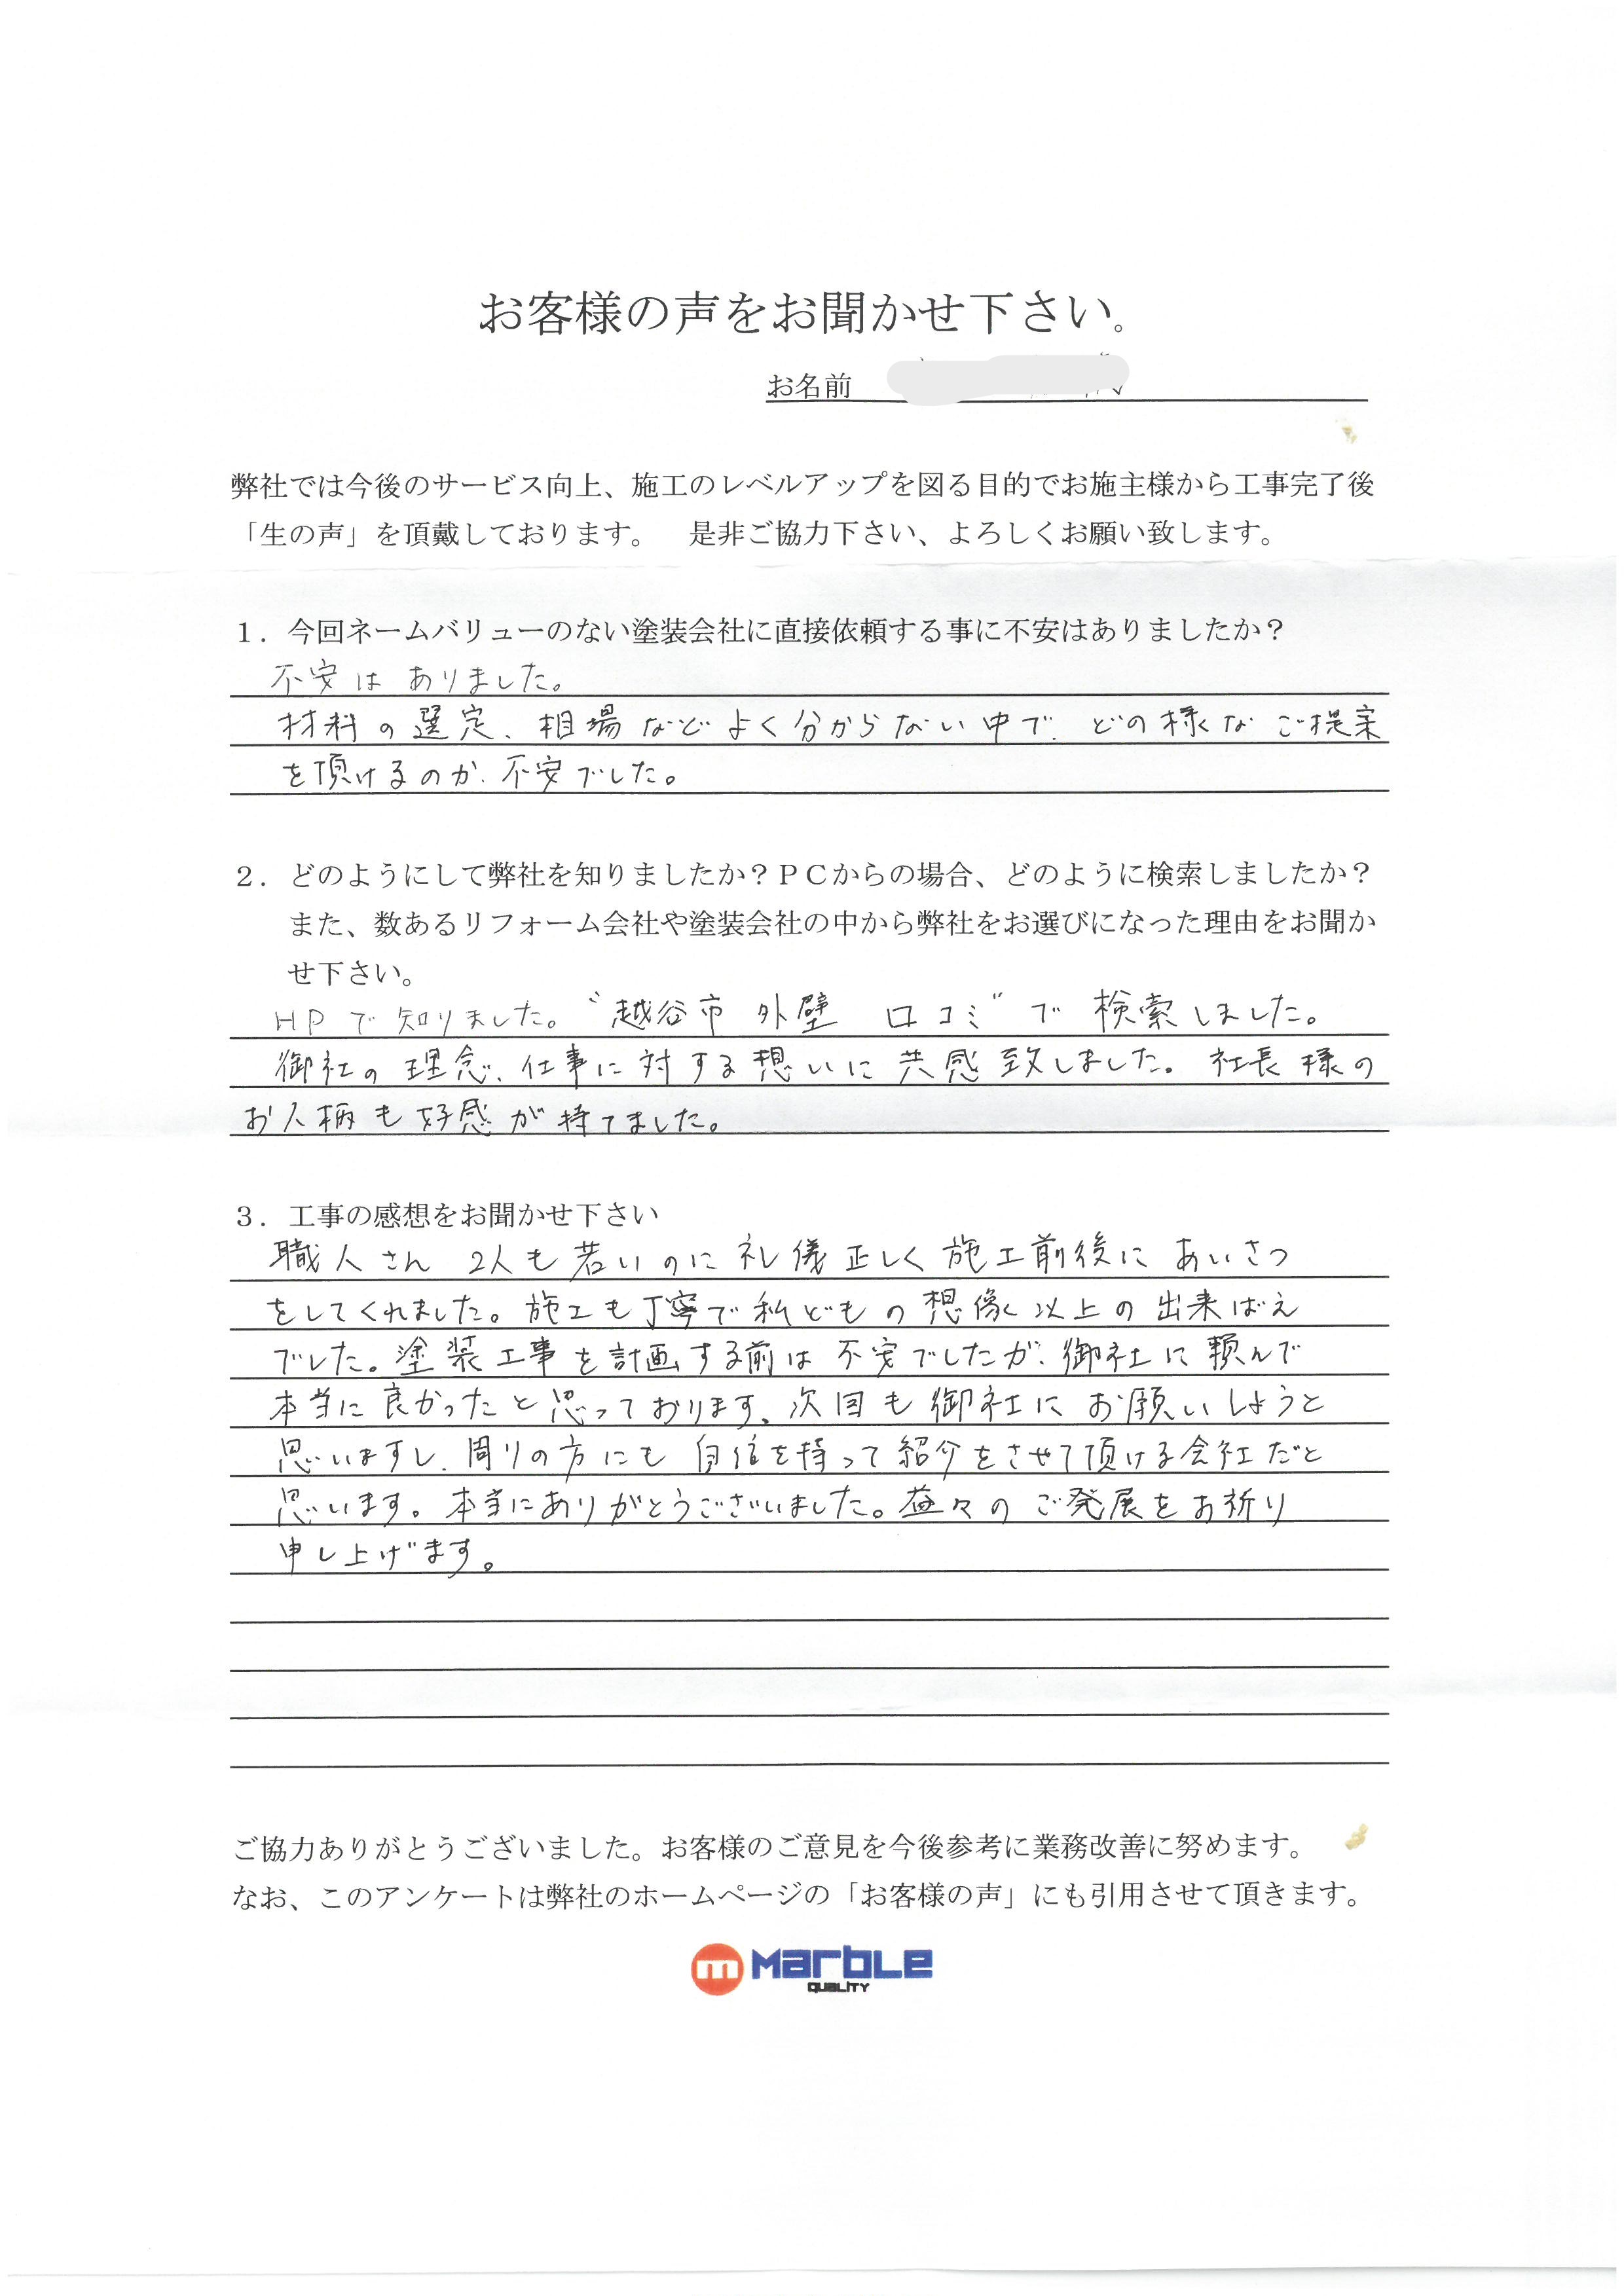 お客様の声をお聞かせ下さい。
お名前
弊社では今後のサービス向上、施工のレベルアップを図る目的でお施主様から工事完了後
「生の声」を頂戴しております。 是非ご協力下さい、よろしくお願い致します。
１．今回ネームバリューのない塗装会社に直接依頼する事に不安はありましたか？
不安は ありました。
材料の選定、相場などよく分からない中で、どの様なご提案
を頂けるのか、不安でした。
２．どのようにして弊社を知りましたか？ＰＣからの場合、どのように検索しましたか？
また、数あるリフォーム会社や塗装会社の中から弊社をお選びになった理由をお聞か
せ下さい。
HPで知りました。〝越谷市 外壁 口コミ〟で検索しました。
御社の理念、仕事に対する想いに共感致しました。社長様の
お人柄も好感が持てました。
３．工事の感想をお聞かせ下さい
職人さん 2人も若いのに礼儀正しく施工前後にあいさつ
をしてくれました。施工も丁寧で私どもの想像以上の出来ばえ
でした。塗装工事を計画する前は不安でしたが、御社に頼んで
本当に良かったと思っております。次回も御社にお願いしようと
思いますし、周りの方にも自信を持って紹介をさせて頂ける会社だと
思います。本当にありがとうございました。益々のご発展をお祈り
申し上げます。
ご協力ありがとうございました。お客様のご意見を今後参考に業務改善に努めます。
なお、このアンケートは弊社のホームページの「お客様の声」にも引用させて頂きます。
m Marble
QUALITY